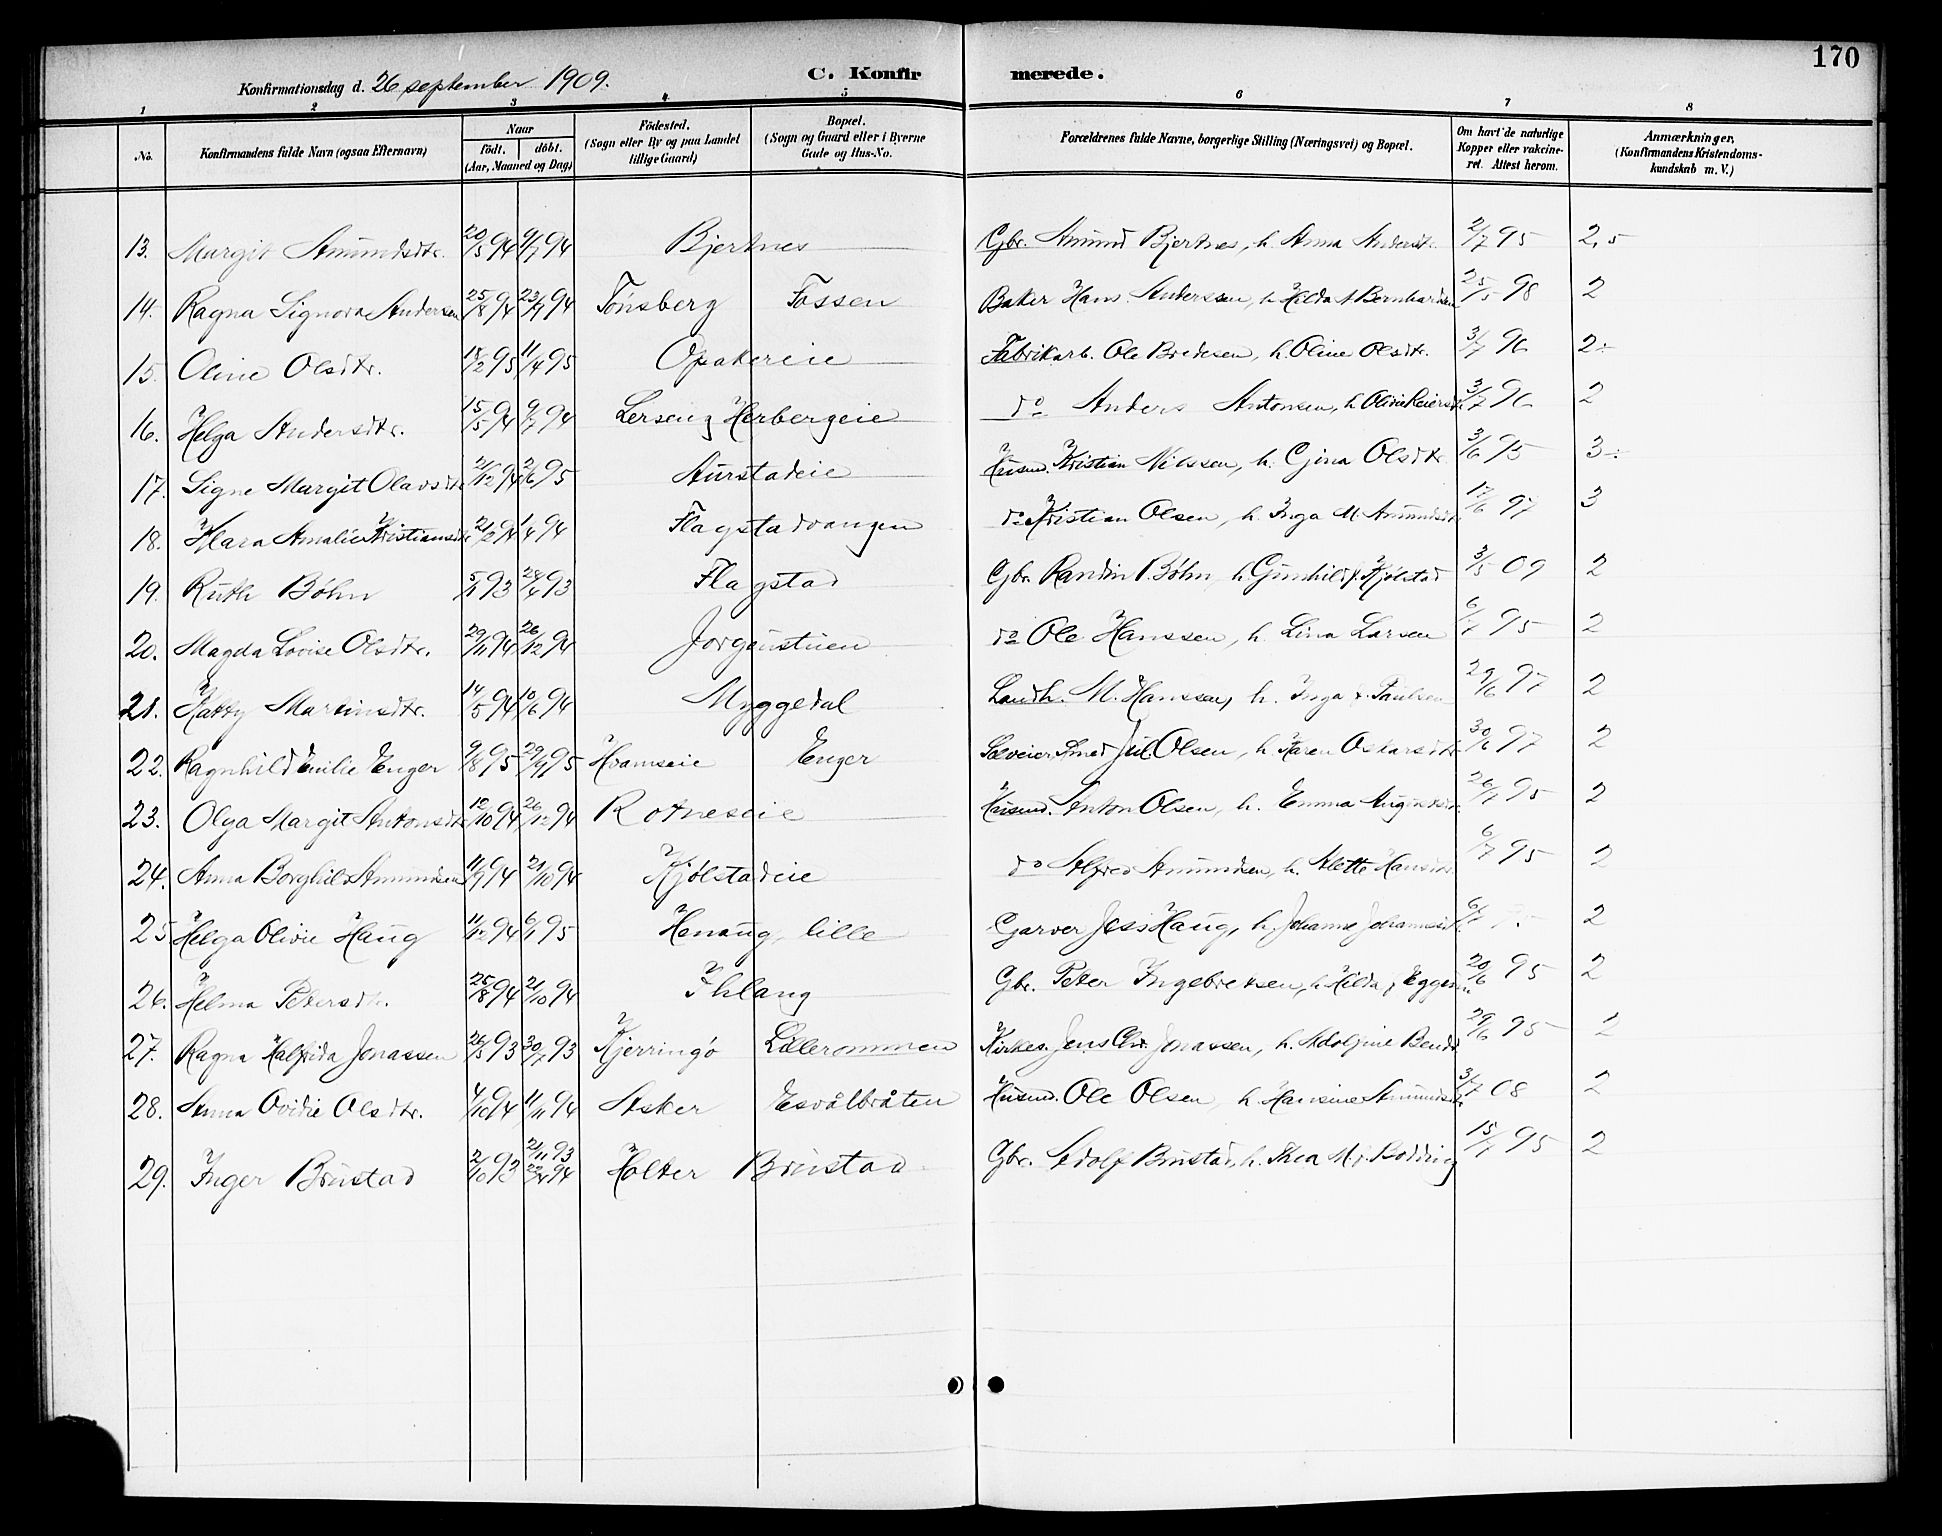 170
Konfirmationsdag d. 26 september 1909. C. Konfirmerede.
1 2 3 4 5 6 7 8
No. Konfirmandens fulde Navn (ogsaa Efternavn) Naar født. døbt. (Aar, Maaned og Dag) Fødested. (Sogn eller By og paa Landet tillige Gaard) Bopæl. (Sogn og Gaard eller i Byerne Gade og Hus-No. Forældrenes fulde Navne, borgerlige Stilling (Næringsvei) og Bopæl. Om havt de naturlige Kopper eller vakcineret. Attest herom. Anmærkninger, (Konfirmandens Kristendomskundskab m. V.)
13. Margit Amundsdtr. 20/5 94 9/7 94 Bjertnes Gbr. Amund Bjertnes, h. Anna Andersdt. 2/7 95 2,5
14. Ragna Signora Andersen 25/8 94 23/9 94 Tønsberg Fossen Baker Hans Anderssen, h. Hilda A Bernhardsen 25/5 98 2
15. Oline Olsdtr. 18/2 95 11/4 95 Opakereie Fabrikarb. Ole Bredesen, h. Oline Olsdtr. 3/7 96 2÷
16. Helga Andersdtr. 15/5 94 9/7 94 Lerseng Herbergeie do Anders Antonsen, h. Olivie Reiersdt. 3/7 96 2
17. Signe Margit Olavsdtr 21/12 94 2/6 95 Aurstadeie Husmd. Kristian Nilssen, h. Gina Olsdtr 3/6 95 3÷
18. Klara Amalie Kristiansdtr 21/2 94 1/4 94 Flagstadvangen do Kristian Olsen, h. Inga M. Amundsdt. 17/6 97 3
19. Ruth Bøhn 93 93 Flagstad Gbr. Randin Bøhn, h. Gunhild f. Kjølstad 3/5 09 2
20. Magda Lovise Olsdtr. 29/11 94 26/12 94 Jørgenstuen do Ole Hanssen, h. Lina Larsen 6/7 95 2
21. Katty Martinsdtr. 14/5 94 10/6 94 Myggedal Landh. M. Hanssen, h. Inga f. Paulsen 29/6 97 2
22. Ragnhild Emilie Enger 9/8 95 29/9 95 Hvamseie Enger Jul. Olsen, h. Karen Oskarsdtr 30/6 97 2
23. Olga Margit Antonsdtr 12/10 94 26/12 94 Rotneseie Husmd. Anton Olsen, h. Emma Augustdt. 26/7 95 2
24. Anna Borghild Amundsen 11/9 94 21/10 94 Kjølstadeie do Alfred Amundsen, h. Alette Hansdtr. 6/7 95 2
25 Helga Olivie Haug 11/12 94 6/1 95 Hanaug, lille Garver Jess Haug, h. Johanne Johannesdt. 6/7 2
26. Helma Petersdtr. 25/8 94 21/10 94 Ihlang Gbr. Peter Ingebretsen, h. Hilda f. Eggum 20/6 95 2
27. Ragna Halfrida Jonassen 26/5 93 30/7 93 Kjerringø Lillerommen Kirkes. Jens Chr. Jonassen, h. Adolfine Bendt. 29/6 95 2
28. Anna Ovidie Olsdtr. 4/10 94 11/11 94 Asker Esvålbråten Husmd. Ole Olsen, h. Hansine Amundsdt. 3/7 08 2
29. Inger Brustad 2/10 93 21/11 93 94 Holter Brustad Gbr. Adolf Brustad, h. Thea M. f. Bodding 15/7 95 2